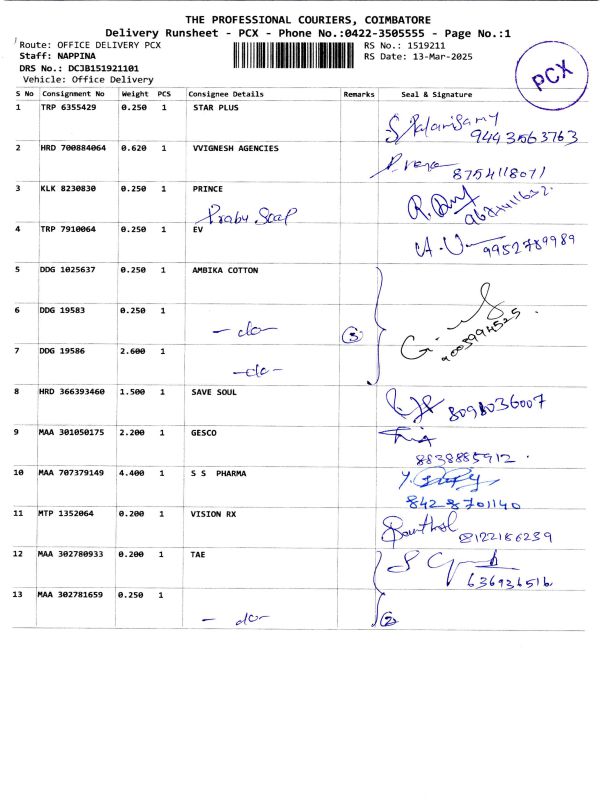 THE PROFESSIONAL COURIERS, COIMBATORE
Delivery Runsheet - PCX - Phone No.:0422-3505555 - Page No.:1
Route: OFFICE DELIVERY PCX RS No.: 1519211
Staff: NAPPINA RS Date: 13-Mar-2025
DRS No.: DCJB151921101
Vehicle: Office Delivery
PCX
S No Consignment No Weight PCS Consignee Details Remarks Seal & Signature
1 TRP 6355429 0.250 1 STAR PLUS
9443563763
2 HRD 700884064 0.620 1 VVIGNESH AGENCIES
8754118071
3 KLK 8230830 0.250 1 PRINCE
4 TRP 7910064 0.250 1 EV
9952789989
5 DDG 1025637 0.250 1 AMBIKA COTTON
6 DDG 19583 0.250 1
- do- 3
9003994525
7 DDG 19586 2.600 1
-do-
8 HRD 366393460 1.500 1 SAVE SOUL
8098036007
9 MAA 301050175 2.200 1 GESCO
8838885912.
10 MAA 707379149 4.400 1 S S PHARMA
8428701140
11 MTP 1352064 0.200 1 VISION RX
8122166239
12 MAA 302780933 0.200 1 TAE
636936516
13 MAA 302781659 0.250 1
- do- 2